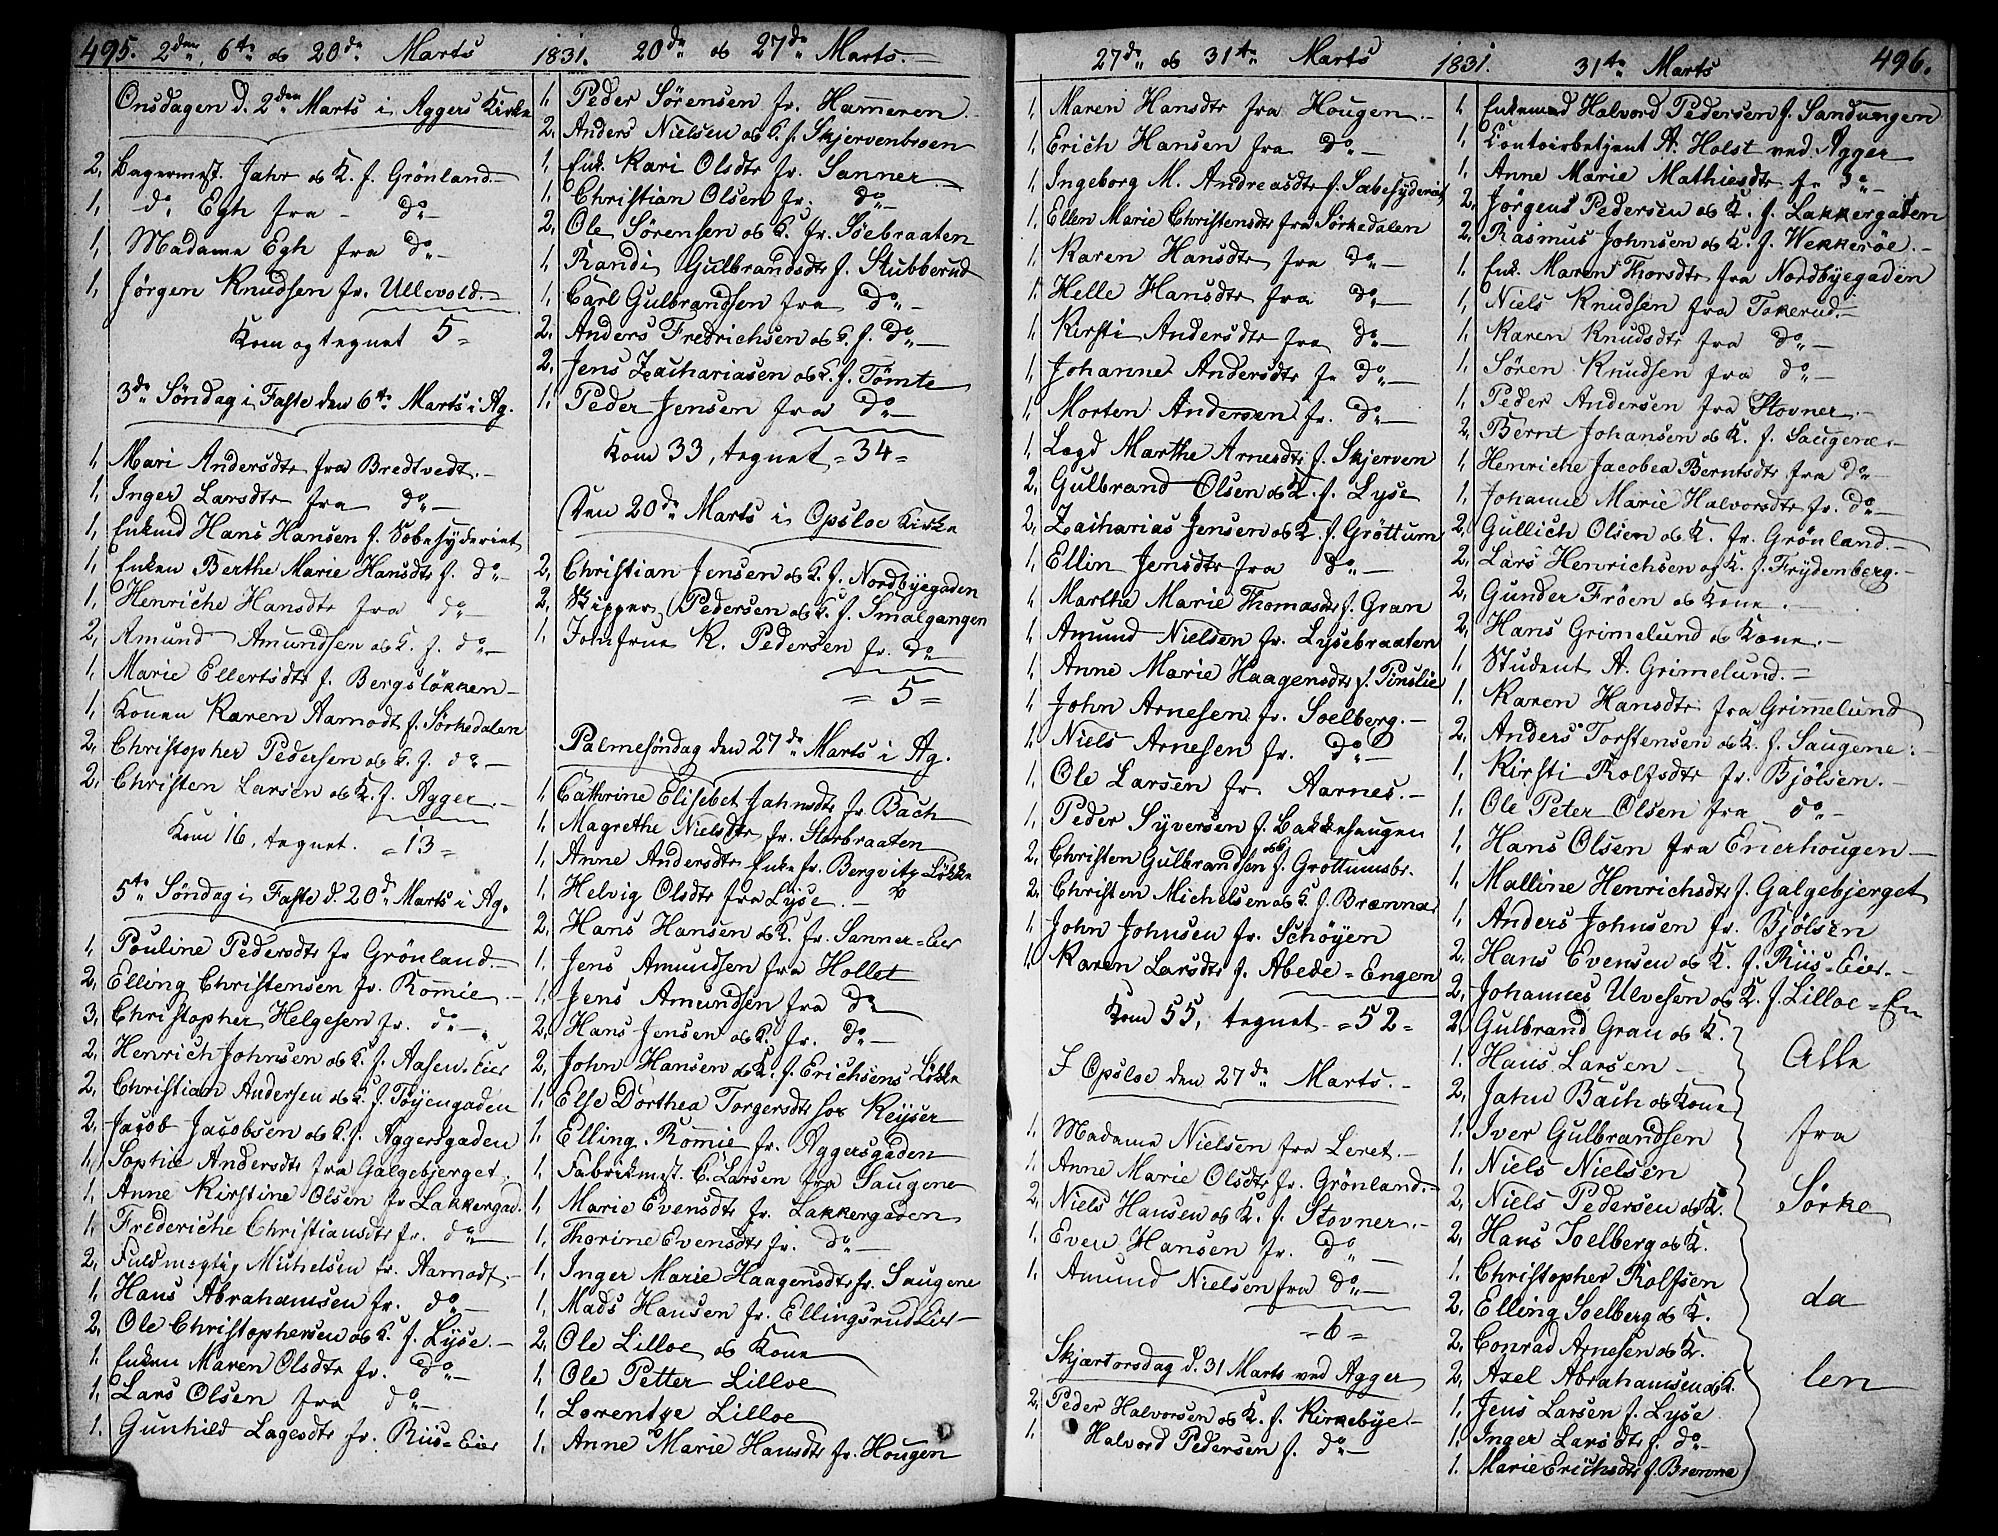 495. 2den, 6te og 20de Marts 1831. 20de og 27de Marts.
Onsdagen d. 2den Marts i Aggers Kirke
2, Bagermest. Jahr og K. f. Grönland.
1, do. Egh fra do
1, Madame Egh fra do
1, Jörgen Knudsen fr. Ullevold.
Kom og tegnet 5
3de Söndag i Faste den 6te Marts i Ag.
1, Mari Andersdtr fra Bredtvedt.
1, Inger Larsdtr fra do
1, Enkemd Hans Hansen f. Sæbesyderiet
1, Enken Berthe Marie Hansdtr f. do
1, Henriche Hansdtr fra do
2, Amund Amundsen og K. f. do
1, Marie Ellertsdtr f. Bergslökken
1, Konen Karen Aamodt f. Sörkedalen
2, Christopher Pedersen og K. f. do
2, Christen Larsen og K. f. Agger.
Kom 16, tegnet. =13=
5te Söndag i Faste d. 20de Marts i Ag.
1, Pouline Pedersdtr fr Grönland.
2, Elling Christensen fr. Rommie
3, Christopher Helgesen fr. do
2, Henrich Johnsen og K. f. Aasen-Eier
2, Christian Andersen og K. f. Töyengaden
2, Jacob Jacobsen og K. f. Aggersgaden
1, Sophie Andersdtr fra Galgebjerget.
1, Anne Kirstine Olsen fr Lakkergad.
1, Frederiche Christiansdtr fr. do
2, Fuldmægtig Michelsen fr. Aamodt.
1, Hans Abrahamsen fr. do
2, Ole Christophersen og K. f. Lyse.
1, Enken Maren Olsdtr fr. do
1, Lars Olsen fra do
1, Gunhild Lagesdtr fr. Riis=Eier
1, Peder Sörensen fr. Hammeren.
2, Anders Nielsen og K. f. Skjervenbroen
1, Enk. Kari Olsdtr fr. Sanner.
1, Christian Olsen fr. do
2, Ole Sörensen og K. fr. Söebraaten
1, Randi Gulbrandsdtr f. Stubberud
1, Carl Gulbrandsen fra do
2, Anders Fredrichsen og K. f. do
2, Jens Zachariasen og K. f. Tömte
1, Peder Jensen fra do
Kom 33, tegnet =34=
Den 20de Marts i Opsloe Kirke
2, Christian Jensen og K. f. Nordbyegaden
2, Skipper Pedersen og K. f. Smalgangen
1, Jomfrue K. Pedersen fr. do
=5=
Palmesöndag den 27de Marts i Ag.
1, Cathrine Elisebet Jahnsdtr fr Bach
1, Magrethe Nielsdtr fr. Storbraaten
1, Anne Andersdtr Enke fr. Bergvitz Lökke
1, Helvig Olsdtr fra Lyse.
2, Hans Hansen og K. fr. Sanner=Eier
1, Jens Amundsen fra Hollet
1, Jens Amundsen fra do
2, Hans Jensen og K. fr. do
2, John Hansen og K. f. Erichsens Lökke
1, Else Dorthea Torgersdtr hos Keyser
1, Elling Rommie fr. Aggersgaden
1, Fabrikmest. C. Larsen fra Saugene
1, Marie Evensdtr fr. Lakkergaden
1, Thorine Evensdtr fr. do
1, Inger Marie Haagensdtr fr. Saugene
1, Mads Hansen fr. Ellingsrud Eier
2, Ole Lilloe og Kone
1, Ole Petter Lilloe
1, Lorentze Lilloe
1, Anne Marie Hansdtr fr. Hougen
27de og 31te Marts 1831. 31te Marts 496.
1, Maren Hansdtr fra Hougen.
1, Erich Hansen fra do
1, Ingeborg M. Andreasdtr f. Sæbesyderiet
1, Ellen Marie Christensdtr fra Sörkedalen
1, Karen Hansdtr fra do
1, Helle Hansdtr fra do
1, Kirsti Andersdtr fra do
1, Johanne Andersdtr fr do
1, Morten Andersen fr. do
1, Lægd Marthe Arnesdtr f. Skjerven
2, Gulbrand Olsen og K. f. Lyse
2, Zacharias Jensen og K. f. Gröttum
1, Ellin Jensdtr fra do
1, Marthe Marie Thomasdtr f. Gran
1, Amund Nielsen fr. Lysebraaten
1, Anne Marie Haagensdtr f. Pinslie
1, John Arnesen fr. Soelberg.
1, Niels Arnesen fr. do
1, Ole Larsen fr. Aarnes.
1, Peder Syversen f. Bakkehaugen
2, Christen Gulbrandsen og K f. Grottumsbr.
2, Christen Michelsen og K. f. Brænna
1, John Johnsen fr. Schöyen
1, Karen Larsdtr f. Abede=Engen
Kom 55, tegnet =52=
I Opsloe den 27de Marts.
1, Madame Nielsen fra Leret.
1, Anne Marie Olsdtr fr. Grönland.
2, Niels Hansen og K. f. Stovner.
1, Even Hansen fr. do
1, Amund Nielsen fra do
=6=
Skjærtorsdag d. 31 Marts ved Agger
2, Peder Halvorsen og K. f. Kirkebye
1, Halvord Pedersen f. do
1, Enkemad Halvord Pedersen f. Sandungen
1, Contoirbetjent A. Holst ved Agger
1, Anne Marie Mathiesdtr fr do
2, Jörgens Pedersen og K. f. Lakkergaden
2, Rasmus Johnsen og K. f. Wekkeröe.
1, Enk. Maren Thorsdtr fra Nordbyegaden
1, Niels Knudsen fra Tokerud.
1, Karen Knudsdtr fra do
1, Sören Knudsen fra do
1, Peder Andersen fra Stovner.
2, Bernt Johansen og K. f. Saugene.
1, Henriche Jacobea Berntsdtr fra do
1, Johanne Marie Halvorsdtr fr. do
2, Gullich Olsen og K. fr. Grönland.
2, Lars Henrichsen og K. f. Frydenberg.
2, Gunder Fröen og Kone.
2, Hans Grimelund og Kone.
1, Student A. Grimelund.
1, Karen Hansdtr fra Grimmelund
2, Anders Torstensen og K. f. Saugene.
1, Kirsti Rolfsdtr fr. Bjölsen.
1, Ole Peter Olsen fra do
1, Hans Olsen fra Enerhougen
1, Malline Henrichsdtr f. Galgebjerget
1, Anders Johnsen fr. Bjölsen
2, Hans Evensen og K. f. Riis=Eier
2, Johannes Ulvesen og K. f. Lilloe=En
2, Gulbrand Gran og K.
1, Hans Larsen
2, Jahn Bach og Kone
1, Iver Gulbrandsen
1, Niels Nielsen
2, Niels Pedersen og K.
2, Hans Soelberg og K.
1, Christopher Rolfsen
2, Elling Soelberg og K.
2, Conrad Arnesen og K.
2, Axel Abrahamsen og K.
1, Jens Larsen f. Lyse
1, Inger Larsdtr f. do
1, Marie Erichsdtr f. Brenna
Alle
fra
Sörke
da
len